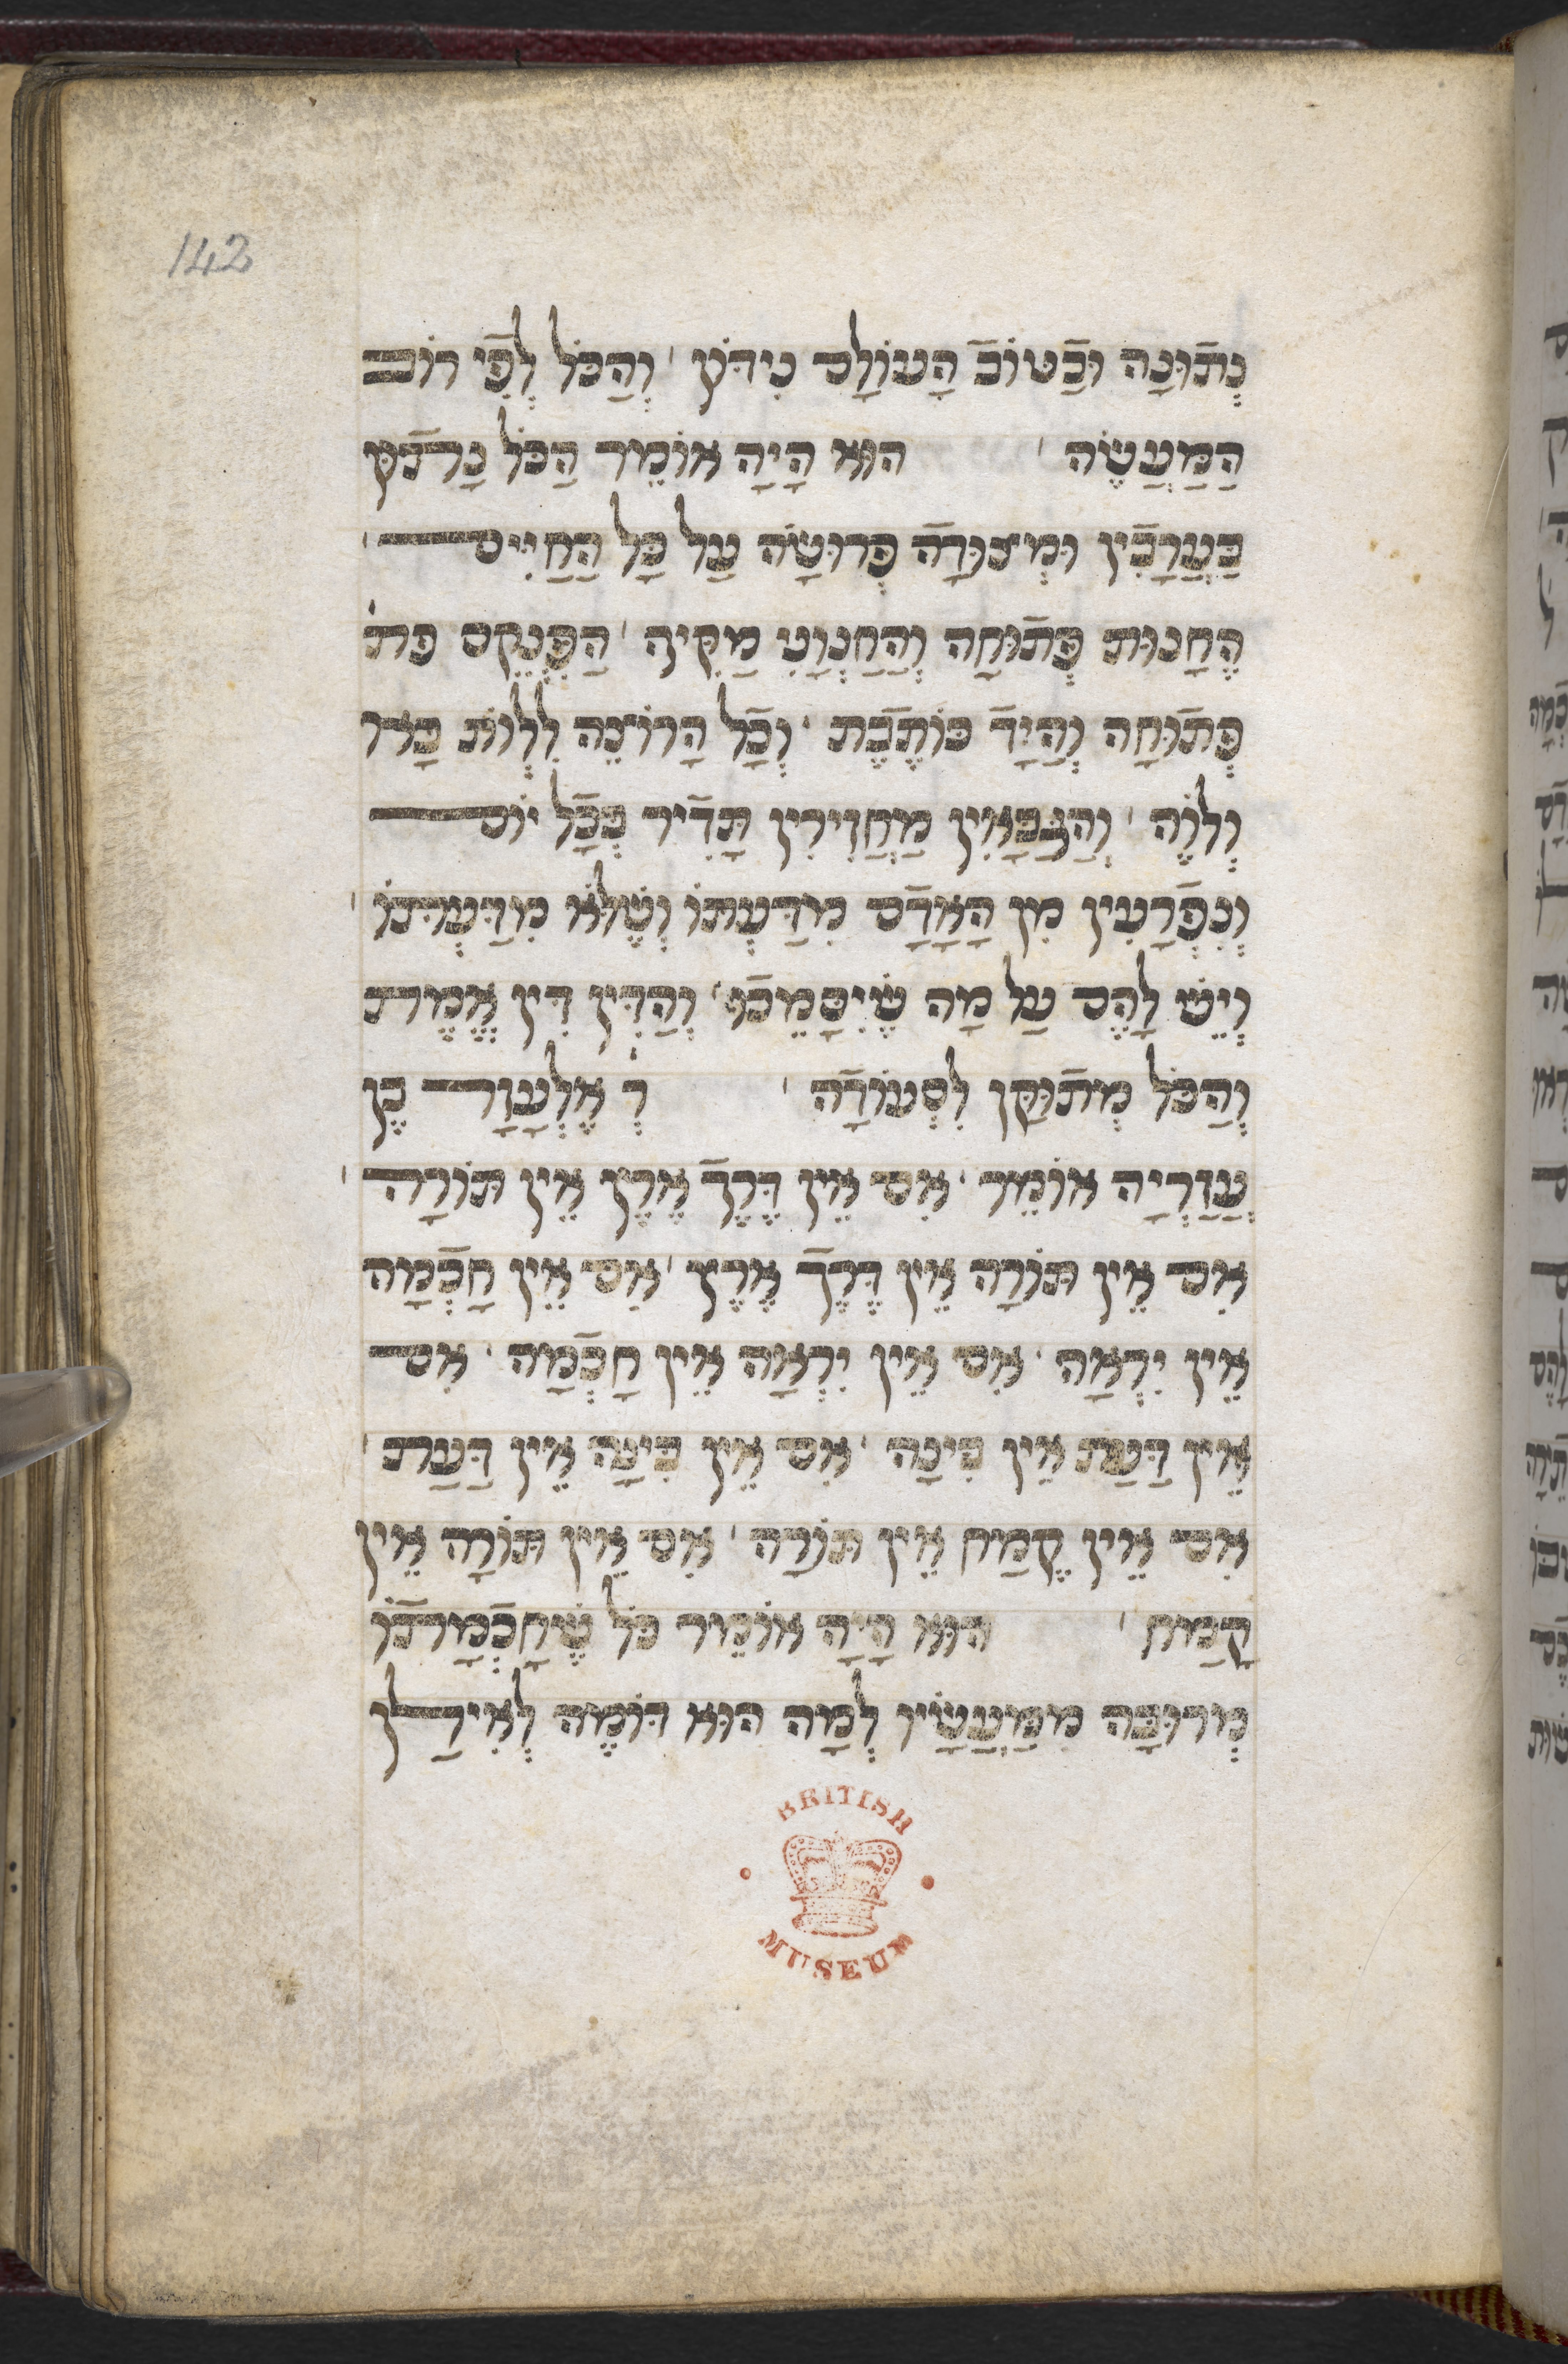 142
נְתוּנָה וּבַטוֹב הָעוֹלָם נִידּוֹן וְהַכֹּל לְפִי רוֹב
הַמַעֲשֶׂה הוּא הָיָה אוֹמֵר הַכֹּל נָתוּן
בַּעֲרָבוֹן וּמְצוּדָה פְרוּסָה עַל כָּל הַחַיִּים
הֶחָנוּת פְּתוּחָה וְהַחַנְוָנִי מַקִּיף הַפִּנְקֵס פת׳
פְּתוּחָה וְהַיָד כּוֹתֶבֶת וְכָל הָרוֹצֶה לִלְוֹת
וְלוֶֹה וְהַגַּבָּאִין מַחֲזִירִין תָּדִיר בְּכָל יוֹם
וְנִפְרָעִין מִן הָאָדָם מִדַּעְתּוֹ וְשֶׁלֹּא מִדַּעְתּוֹ
וְיֵשׁ לָהֶם עַל מָה שֶׁיִסָּמֵכוּ וְהַדִּין דִּין אֱמֶת
וְהַכֹּל מְתוּקַּן לִסְעוּדָה ר׳ אֶלְעָזָר בֶּן
עֲזַרְיָה אוֹמֵר אִם אֵין דֶּרֶךְ אֶרֶץ אֵין תּוֹרָה
אִם אֵין תּוֹרָה אֵין דֶּרֶךְ אֶרֶץ אִם אֵין חָכְמָה
אֵין יִרְאָה אִם אֵין יִרְאָה אֵין חָכְמָה אִם
אֵין דַּעַת אֵין בִּינָה אִם אֵין בִּינָה אֵין דַּעַת
אִם אֵין קֶמַח אֵין תּוֹרָה אִם אֵין תּוֹרָה אֵין
קֶמַח הוּא הָיָה אוֹמֵר כֹּל שֶׁחָכְמָתוֹ
מְרוּבָּה מִמַּעֲשָׂיו לְמָה הוּא דּוֹמֶה לְאִילָן
BRITISH
MUSEUM